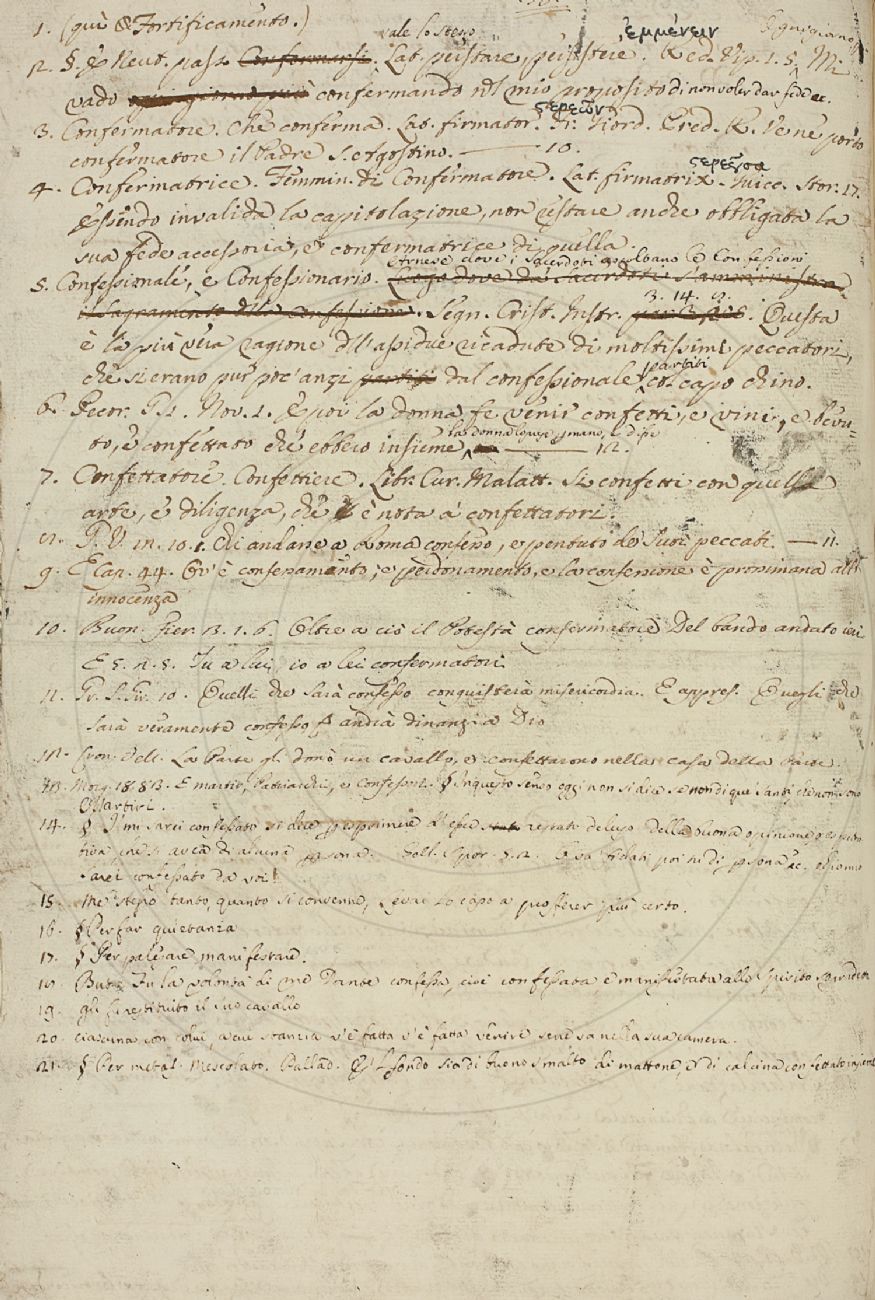 1. (qui è Fortificamento.)
vale lo stesso ἐμμένειν
2. § E Neut. pass. Confermarsi. Lat. perstare, persistere. Red. Vip. 1. 5. Mi
vado confermando nel mio proposito di non voler dar fede ec.
στερεῶν
3. Confermatore. Che conferma. Lat. firmator. Fr. Giord. Pred. R. Ve ne porto
confermatore il Padre S. Agostino. 10.
4. Confermatrice. Femmin. di Confermatore. Lat. firmatrix. Guicc. Stor. 17.
essendo invalida la capitolazione, non restare anche obbligata la
sua fede accessoria, e confermatrice di quella.
Arnese dove i Sacerdoti ascoltano le Confessioni
5. Confessionale, e Confessionario. Luogo dove da' Sacerdoti s'amministra
3. 14. 12.
il Sagramento della Confessione. Segn. Crist. Instr. Questa
è la più vera ragione dell'assidue ricadute di moltissimi peccatori,
che si erano pur poc'anzi partiti dal confessionale col capo chino.
6. Pecor. G. 1. Nov. 1. E poi la donna fe venir confetti, e vini, e bevu-
to, e confettato che ebbero insieme la donna lo prese p mano, e disse 12.
7. Confettatore. Confettiere. Libr. Cur. Malatt. Si confetti con quella
arte, e diligenza, che è nota a' confettatori.
8. G. V. 12. 10. 1. Di andare a Roma confesso, e pentuto de' suoi peccati. 11.
9. E Cap. 44. Ov' è confessamento, è perdonamento, e la confessione è prossimana all'
innocenza
10. Buon. Fier. 3. 1. 6. Oltre a ciò il Potestà confermatore Del bando andato ieri
E 5. 2. 5. Tu a lui, io a lei confermatori
11. Gr. S. Gir. 10. Quelli che sarà confesso conquisterà misericordia. E appres. Quegli che
sarà veramente confesso andrà dinanzi a Dio
12. Cron. Vell. La Parte gli donò un cavallo, e confettarono nella casa della Parte.
13. Morg. 18. 83. E martiri, Patriarchi, e confessori. § In questo senso oggi non si dice se non di que' Santi, che non sono
Martiri.
14. § I' mi sarei confessato si dice p esprimere d'esser restato deluso della buona opinione
che s' avea di alcuna psona. Va' fidati poi tu di psona ec. 
sarei confessato da voi!
15. Me' stesso tanto, quanto si convenne, Levai lo capo a profferer più certo.
16. § Per far quietanza
17. § Per palesare manifestare.
18. But. Fu la volontà di me Dante confessa, cioè confessata e manifestata allo spirito
19. gli fu restituito il suo cavallo
20. ciascuna con colui, a cui stanzia v'è fatta v'è fatta venire sen' va nella sua camera.
21. § Per metaf. Mescolato. Pallad. E 'l fondo sia di buono smalto di mattone, e di calcina confettato insieme